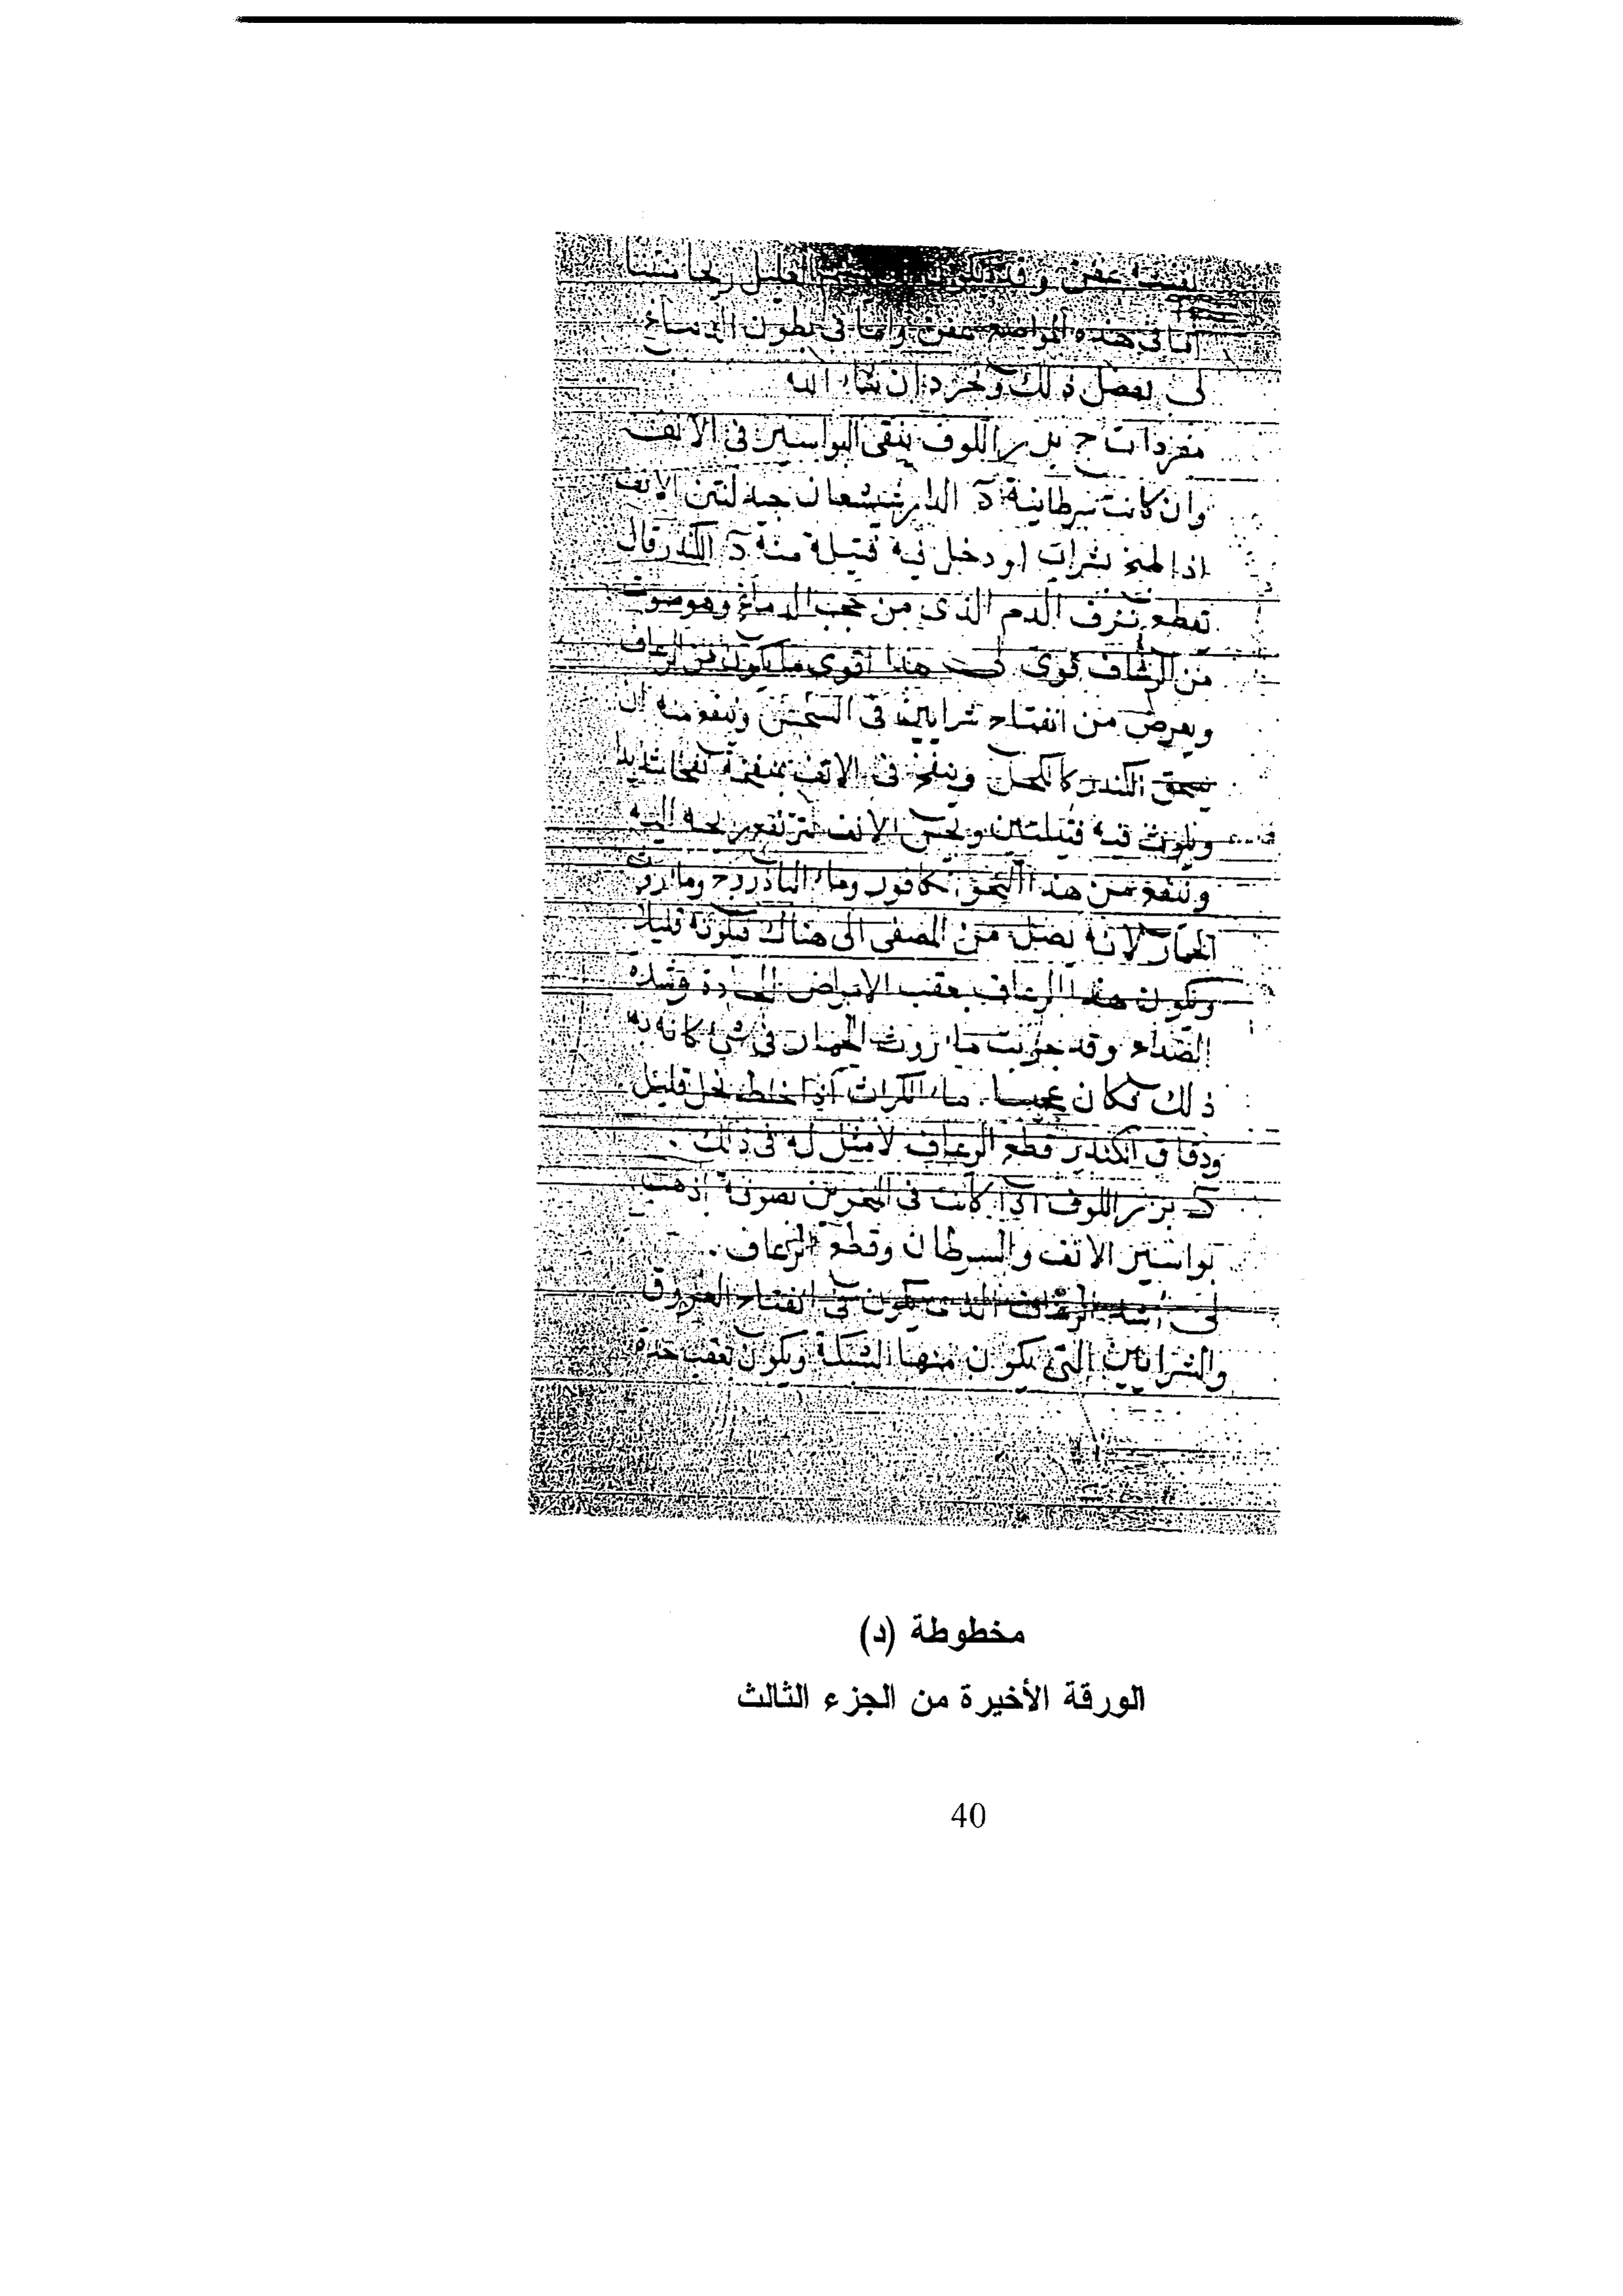 عفن وقد العليل ريحا منتنا
اما فى هذه المواضع عفن واما فى بطون الدماغ
لى يفصل ذلك ويحرر ان شاء الله
مفردات ج بزر اللوف ينقى البواسير فى الانف
وان كانت سرطانية د الدارشيشعان جيد لنتن الانف
اذا بشراب او دخل فيه فتيلة منه د الكندر قال
تقطع نزف الدم الذى من حجب الدماغ وهو صنف
من الرعاف قوى لى هذا اقوى ما يكون من الرعاف
ويعرض من انفتاح شرايين فى وينفع منه ان
يسحق الكندر كالكحل وينفخ فى الانف بمنفخة نفخا شديدا
ويلوث فيه فتيلتين الانف اليه
وينفع من هذا كافور وماء الباذروج وماء روث
الحمار لانه يصل من المصفى الى هناك قليلا
ويكون هذا الرعاف بعقب الامراض الحادة وشدة
الصداع وقد جربت ماء روث الحمار فى شى كانه
ذلك فكان عجيبا ماء الكراث اذا خلط بخل قليل
ودقاق الكندر قطع الرعاف لا مثل له فى ذلك .
د بزر اللوف اذا كانت فى المنخرين بصوفة اذهب
بواسير الانف والسرطان وقطع الرعاف .
لى اشد الرعاف الذى يكون فى انفتاح العروق
والشرايين التى يكون منها الشبكة ويكون بعقب حدة
مخطوطة (د)
الورقة الأخيرة من الجزء الثالث
40